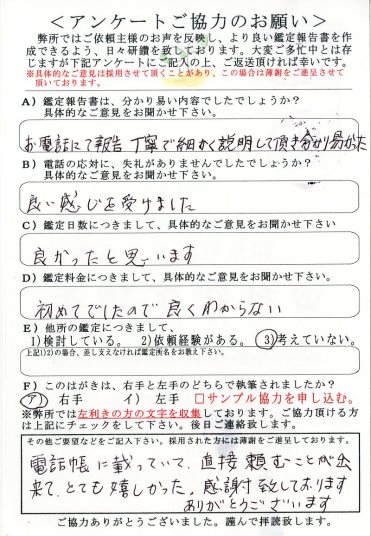 ＜アンケートご協力のお願い＞
弊所ではご依頼主様のお声を反映し、より良い鑑定報告書を作
成できるよう、日々研鑽を致しております。大変ご多忙中とは存
じますが下記アンケートにご記入の上、ご返送頂ければ幸いです。
※具体的なご意見は採用させて頂くことがあり、この場合は薄謝をご進呈させて
頂いております。
A）鑑定報告書は、分かり易い内容でしたでしょうか？
具体的なご意見をお聞かせ下さい。
お電話にて報告 丁寧で細かく説明して頂き分かり易かった
B）電話の応対に、失礼がありませんでしたでしょうか？
具体的なご意見をお聞かせ下さい。
良い感じを受けました
C）鑑定日数につきまして、具体的なご意見をお聞かせ下さい
良かったと思います
D）鑑定料金につきまして、具体的なご意見をお聞かせ下さい。
初めてでしたので良くわからない
E）他所の鑑定につきまして、
1)検討している。 2)依頼経験がある。 3)考えていない。
上記1)2)の場合、差し支えなければ鑑定所名をお教え下さい。
F）このはがきは、右手と左手のどちらで執筆されましたか？
ア) 右手 イ) 左手 □サンプル協力を申し込む。
※弊所では左利きの方の文字を収集しております。ご協力頂ける方
は上記にチェックをして下さい。後日ご連絡致します。
その他ご要望などをご記入下さい。採用された方には薄謝をご進呈しております。
電話帳に載っていて、直接頼むことが出
来て、とても嬉しかった。感謝致しております
ありがとうございます
ご協力ありがとうございました。謹んで拝読致します。